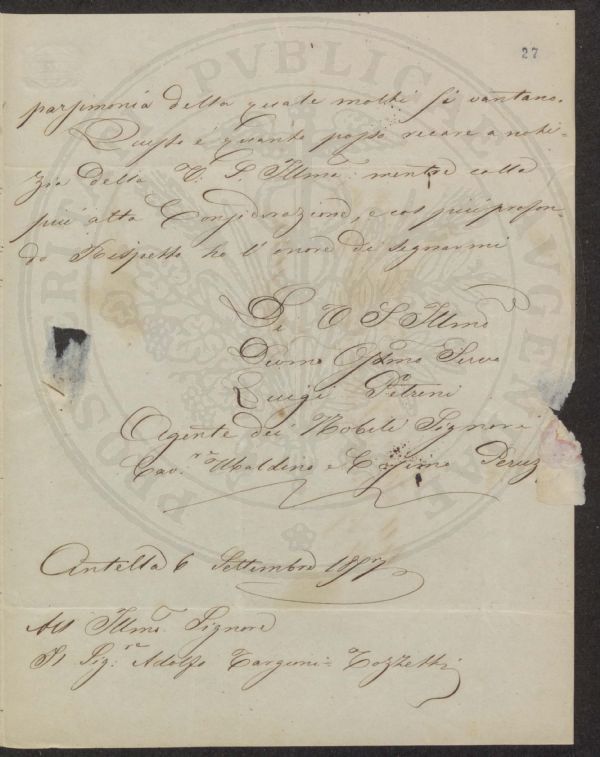 27
parsimonia della quale molti si vantano.
Questo è quanto posso recare a noti-
zia della V. S. Illma: mentre colla
più alta Considerazione, e col più profon-
do Rispetto ho l'onore di segnarmi
Di V S Illma
Devmo Obbmo Servo
Luigi Petreni
Agente dei Nobili Signori
Cavri Ubaldino e Cosimo Peruz
Antella 6 Settembre 1857
All Illmo Signore
Il Sigr Adolfo Targioni=Tozzetti
PVBLICAE
PROSPERITATI
AVGENDAE